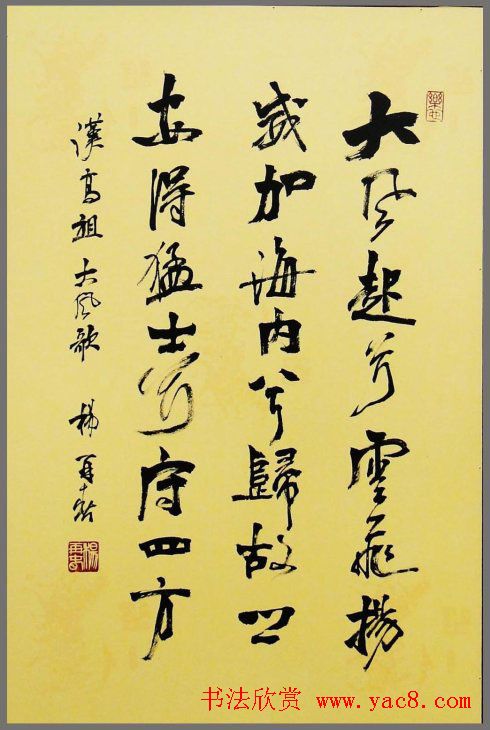 大風起兮雲飛揚
威加海内兮歸故鄉
安得猛士兮守四方
漢高祖大風歌 楊再春
书法欣赏 www.yac8.com